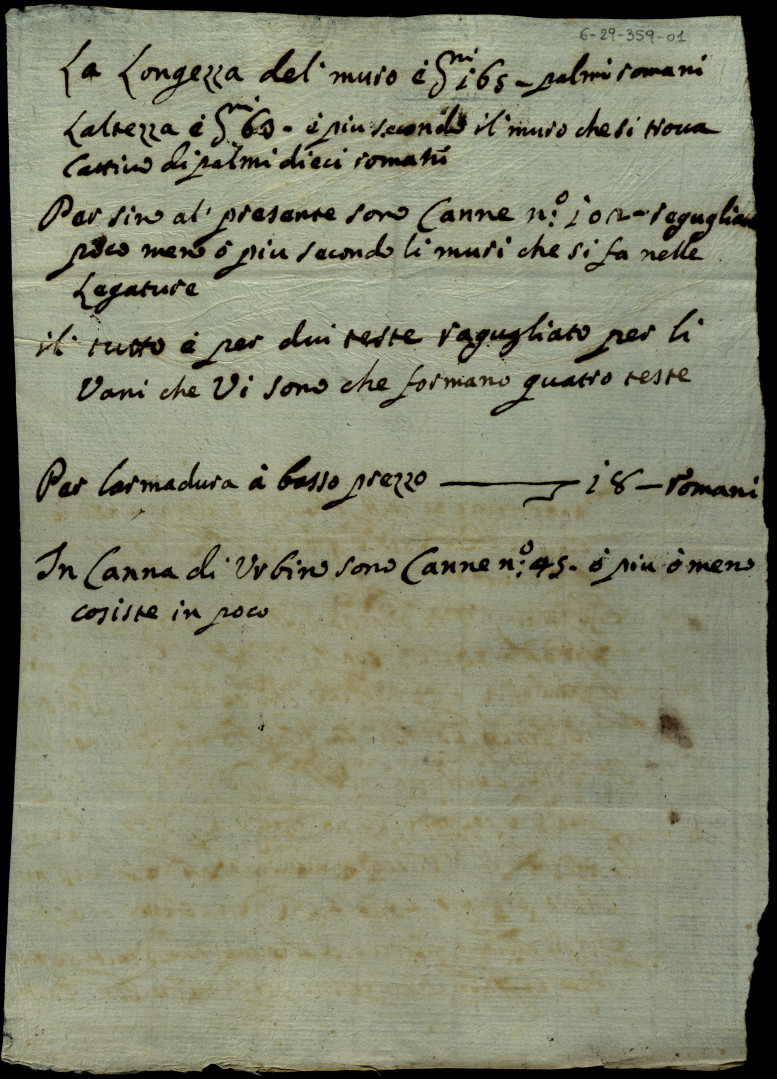 6-29-359-01
La Longezza del' muro è p.mi 165 - palmi romani
Laltezza è p.mi 60 - è piu secondo il' muro che si troua
Cattiuo di palmi dieci romani
Per sino al' presente sono Canne n.o 102 - raguglia
poco meno ò piu secondo li muri che si fa nelle
Legature
il' tutto è per dui teste ragugliato per li
Vani che Vi sono che formano quatro teste
Per larmadura à basso prezzo ——— 18 - romani
In Canna di Urbino sono Canne n.o 45 - ò piu ò meno
cosiste in poco